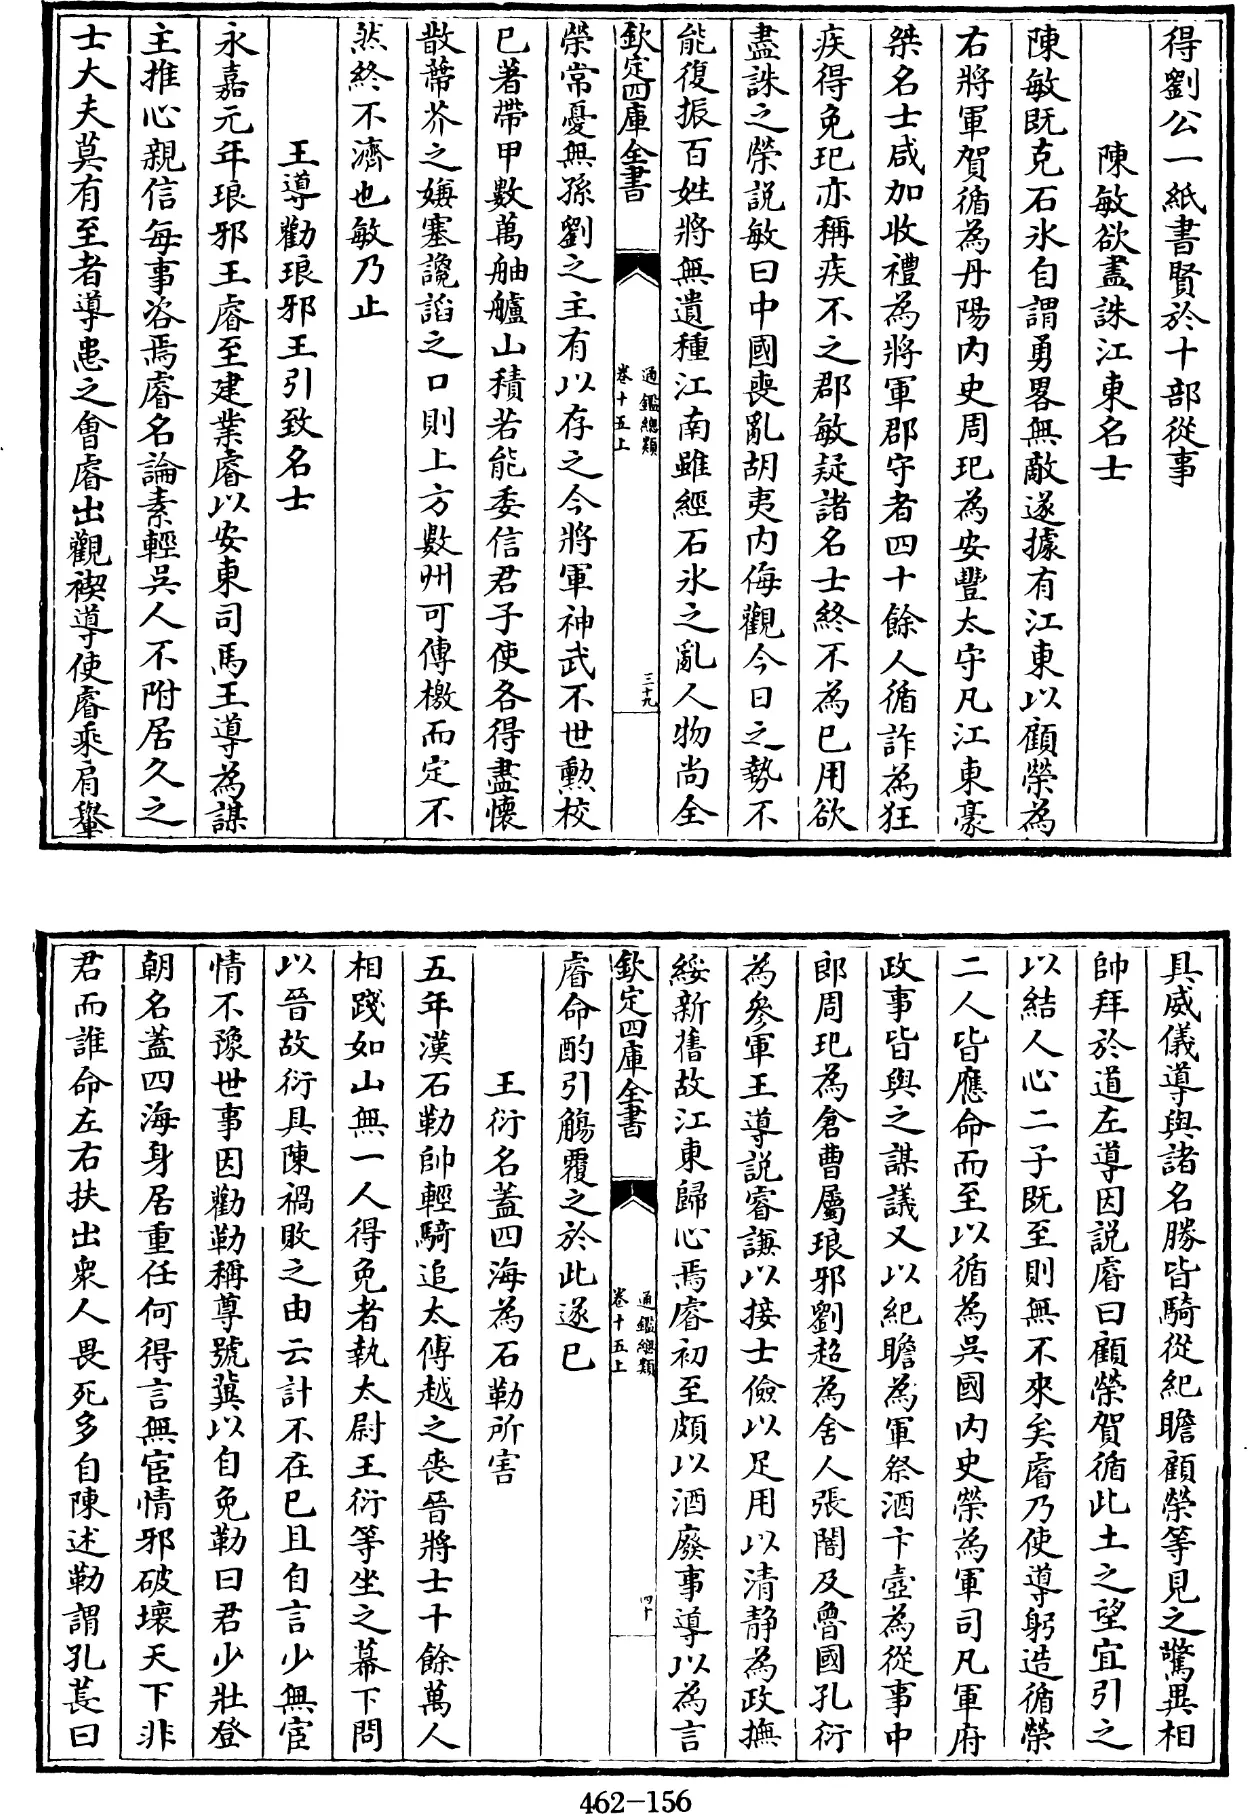 得劉公一紙書賢於十部從事
陳敏欲盡誅江東名士
陳敏既克石氷自謂勇畧無敵遂據有江東以顧榮為
右將軍賀循為丹陽内史周玘為安豐太守凡江東豪
桀名士咸加收禮為將軍郡守者四十餘人循詐為狂
疾得免玘亦稱疾不之郡敏疑諸名士終不為已用欲
盡誅之榮説敏曰中國喪亂胡夷内侮觀今日之勢不
能復振百姓將無遺種江南雖經石氷之亂人物尚全
欽定四庫全書
通鑑總類
卷十五上
三十九
榮常憂無孫劉之主有以存之今將軍神武不世勲校
已著帶甲數萬舳艫山積若能委信君子使各得盡懷
散蔕芥之嫌塞讒謟之口則上方數州可傳檄而定不
然終不濟也敏乃止
王導勸琅邪王引致名士
永嘉元年琅邪王睿至建業睿以安東司馬王導為謀
主推心親信每事咨焉睿名論素輕吳人不附居久之
士大夫莫有至者導患之會睿出觀禊導使睿乘肩轝
具威儀導與諸名勝皆騎從紀瞻顧榮等見之驚異相
帥拜於道左導因説睿曰顧榮賀循此土之望宜引之
以結人心二子既至則無不來矣睿乃使導躬造循榮
二人皆應命而至以循為吳國内史榮為軍司凡軍府
政事皆與之謀議又以紀瞻為軍祭酒卞壼為從事中
郎周玘為倉曹屬琅邪劉超為舍人張闓及魯國孔衍
為參軍王導説睿謙以接士儉以足用以清静為政撫
綏新舊故江東歸心焉睿初至頗以酒廢事導以為言
欽定四庫全書
通鑑總類
卷十五上
四十
睿命酌引觴覆之於此遂已
王衍名蓋四海為石勒所害
五年漢石勒帥輕騎追太傅越之喪晉將士十餘萬人
相踐如山無一人得免者執太尉王衍等坐之幕下問
以晉故衍具陳禍敗之由云計不在已且自言少無宦
情不豫世事因勸勒稱尊號冀以自免勒曰君少壯登
朝名蓋四海身居重任何得言無宦情邪破壞天下非
君而誰命左右扶出衆人畏死多自陳述勒謂孔萇曰
462-156